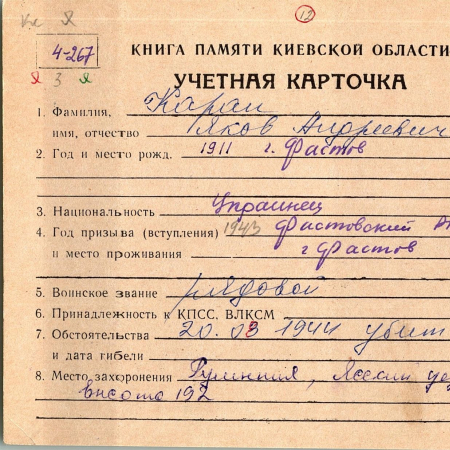 12
4-267
3
КНИГА ПАМЯТИ КИЕВСКОЙ ОБЛАСТИ
УЧЕТНАЯ КАРТОЧКА
1. Фамилия, Каран
имя, отчество Яков Андреевич
2. Год и место рожд. 1911 г. Фастов
3. Национальность Украинец
4. Год призыва (вступления) 1943 Фастовский
и место проживания г Фастов
5. Воинское звание рядовой
6. Принадлежность к КПСС. ВЛКСМ
7. Обстоятельства 20.08 1944 убит
и дата гибели
8. Место захоронения Румыния, Ясский уез
высота 192